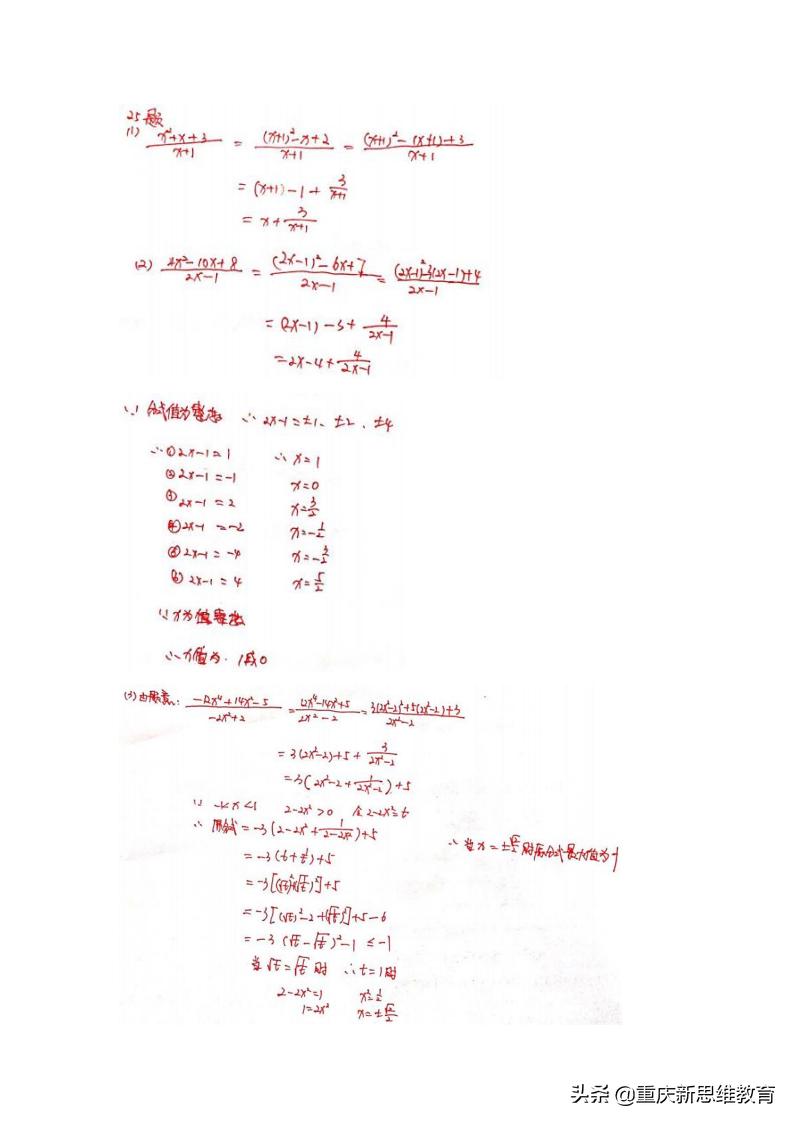 25题
(1) (x²+x+3)/(x+1) = ((x+1)²-x+2)/(x+1) = ((x+1)²-(x+1)+3)/(x+1)
= (x+1)-1+3/(x+1)
= x+3/(x+1)
(2) (4x²-10x+8)/(2x-1) = ((2x-1)²-6x+7)/(2x-1) = ((2x-1)²-3(2x-1)+4)/(2x-1)
= (2x-1)-3+4/(2x-1)
=2x-4+4/(2x-1)
∵分式值为整数 ∴ 2x-1=±1、±2、±4
∴①2x-1=1 ∴x=1
②2x-1=-1 x=0
③2x-1=2 x=3/2
④2x-1=-2 x=-1/2
⑤2x-1=-4 x=-3/2
⑥2x-1=4 x=5/2
∵x为整数
∴x值为:1或0
(3)由题意: (-12x⁴+14x²-5)/(-2x²+2) = (12x⁴-14x²+5)/(2x²-2) = (3(2x²-2)²+5(2x²-2)+3)/(2x²-2)
= 3(2x²-2)+5+3/(2x²-2)
=3(2x²-2+1/(2x²-2))+5
∵ -1<x<1 2-2x²>0 令2-2x²=t
∴ 原式=-3(2-2x²+1/(2-2x²))+5
=-3(t+1/t)+5
=-3[(√t)²+(√1/t)²]+5
=-3[(√t)²-2+(√1/t)²]+5-6
=-3(√t-√1/t)²-1≤-1
当√t=√1/t时 ∴t=1时
2-2x²=1 x²=1/2
1=2x² x=±√2/2
∴当x=±√2/2时原分式最大值为-1
头条 @重庆新思维教育